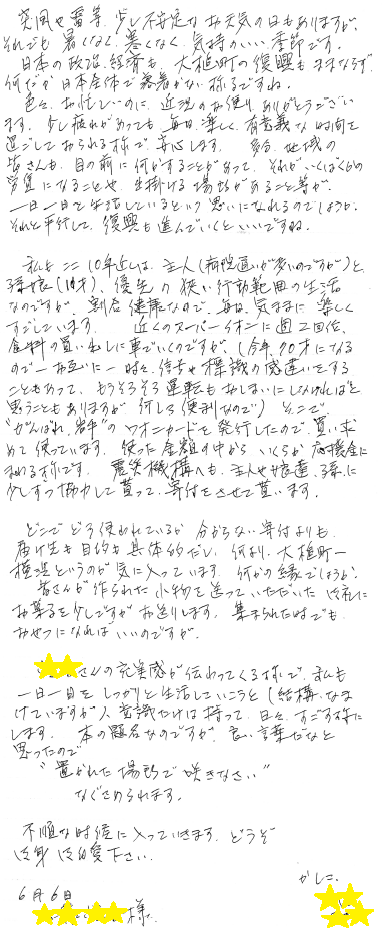 突風や雷等、少し不安定なお天気の日もありますが、
それでも 暑くなく、寒くなく、気持のいい季節です。
日本の政治、経済も、大槌町の復興もままならず、
何だか日本全体で落着かない様ですね。
色々、お忙しいのに、近況のお便り ありがとうござい
ます。少し疲れがあっても、毎日楽しく、有意義な時間を
過ごしておられる様で、安心します。 地域の
皆さんも、目の前に何かすることがあって、それが、いくばくかの
賃になることや、出掛ける場所があること等が、
一日一日を生活しているという思いになれるのでしょうか。
それと平行して、復興も進んでいくといいですね。
私も ここ10年近しは、主人(病院通いが多いのですが)と、
優先の狭い行動範囲の生活
なのですが、割合健康なので、毎日気ままに楽しく
すごしています。 近くのスーパーイオンに週2回位、
食料の買い出しに車でいくのですが、(今年70才になる
ので、お互いに一時々、信号や標識の感違いをする
こともあって、もうそろそろ運転もおしまいにしなければと
思うこともありますが、何しろ便利なので) そこで
"がんばれ岩手"のワオンカードを発行したので、買い求
めて使っています。使った金額の中から いくらか応援金に
まわる様です。 震災機構へも、主人や友達、 に
少しずつ協力して貰って、寄付をさせて貰います。
どこで どう使われているか 分からない寄付よりも
届け先も目的も具体的だし、何より、大槌町一
というのが気に入っています。何かの縁でしょうか。
皆さんが作られた小物を送っていただいた 御礼に
お菓子を少しですが お送りします。集まられた時でも、
おやつになれば いいのですが。
さんの充実感が伝わってくる様で、私も
一日一日を しっかりと生活していこうと (結構、なま
けていますが) 意識だけは持って、日々、すごす様に
します。 本の題名なのですが、良い言葉だなと
思ったので
"置かれた場所で咲きなさい"
なぐさめられます。
不順な時候に入っていきます。どうぞ
御身 御自愛下さい。
かしこ.
6月6日
様.